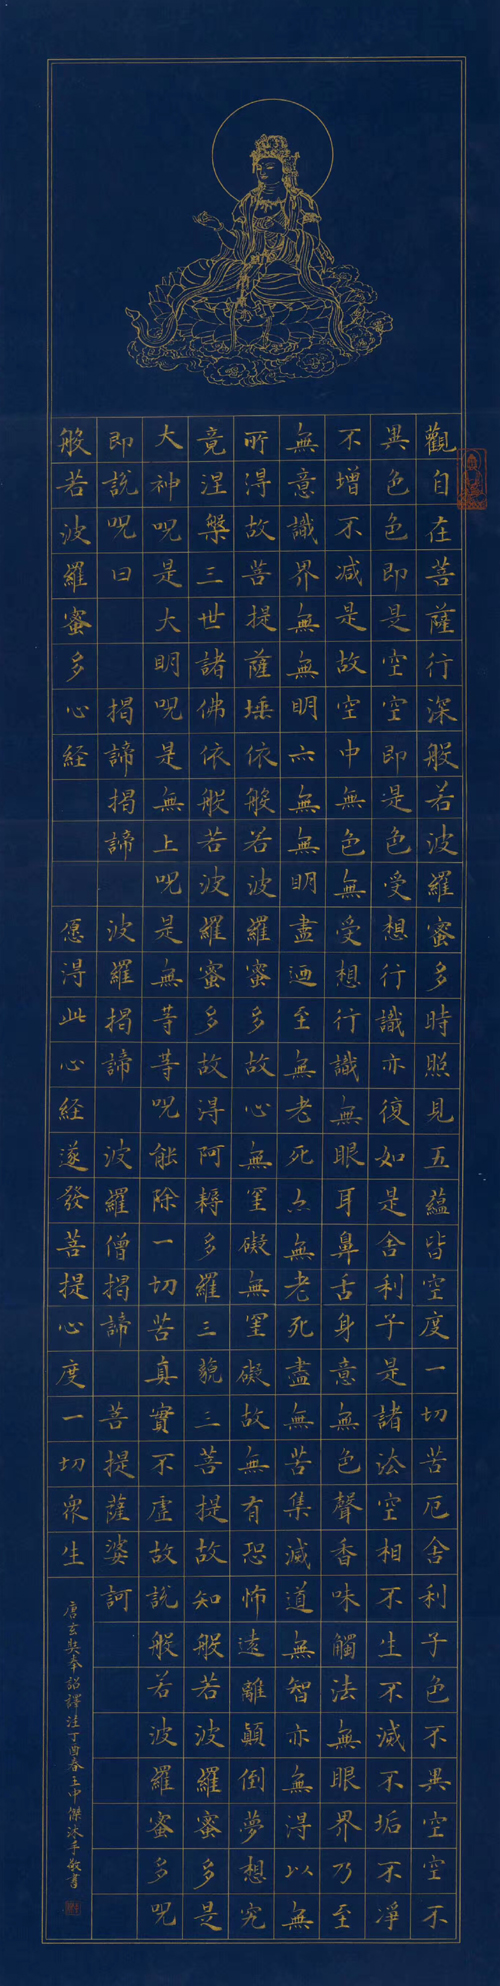 觀自在菩薩行深般若波羅蜜多時照見五蘊皆空度一切苦厄舍利子色不異空空不
異色色即是空空即是色受想行識亦復如是舍利子是諸法空相不生不滅不垢不淨
不增不减是故空中無色無受想行識無眼耳鼻舌身意無色聲香味觸法無眼界乃至
無意識界無無明亦無無明盡迺至無老死亦無老死盡無苦集滅道無智亦無得以無
所得故菩提薩埵依般若波羅蜜多故心無罣礙無罣礙故無有恐怖遠離顛倒夢想究
竟涅槃三世諸佛依般若波羅蜜多故得阿耨多羅三藐三菩提故知般若波羅蜜多是
大神呪是大明呪是無上呪是無等等呪能除一切苦真實不虛故說般若波羅蜜多呪
即說呪曰 揭諦揭諦 波羅揭諦 波羅僧揭諦 菩提薩婆訶
般若波羅蜜多心経 愿得此心経遂發菩提心度一切眾生
唐玄奘奉詔譯注丁酉春王中傑沐手敬書